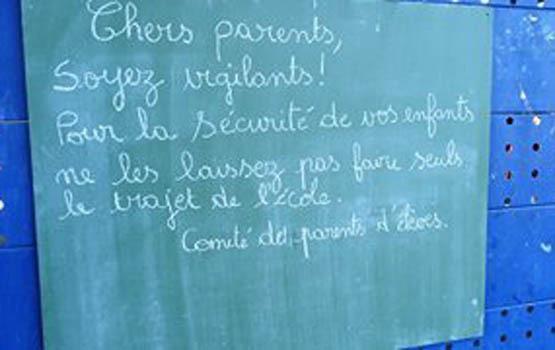 Chers parents,
Soyez vigilants!
Pour la sécurité de vos enfants
ne les laissez pas faire seuls
le trajet de l'école.
Comité des parents d'élèves.